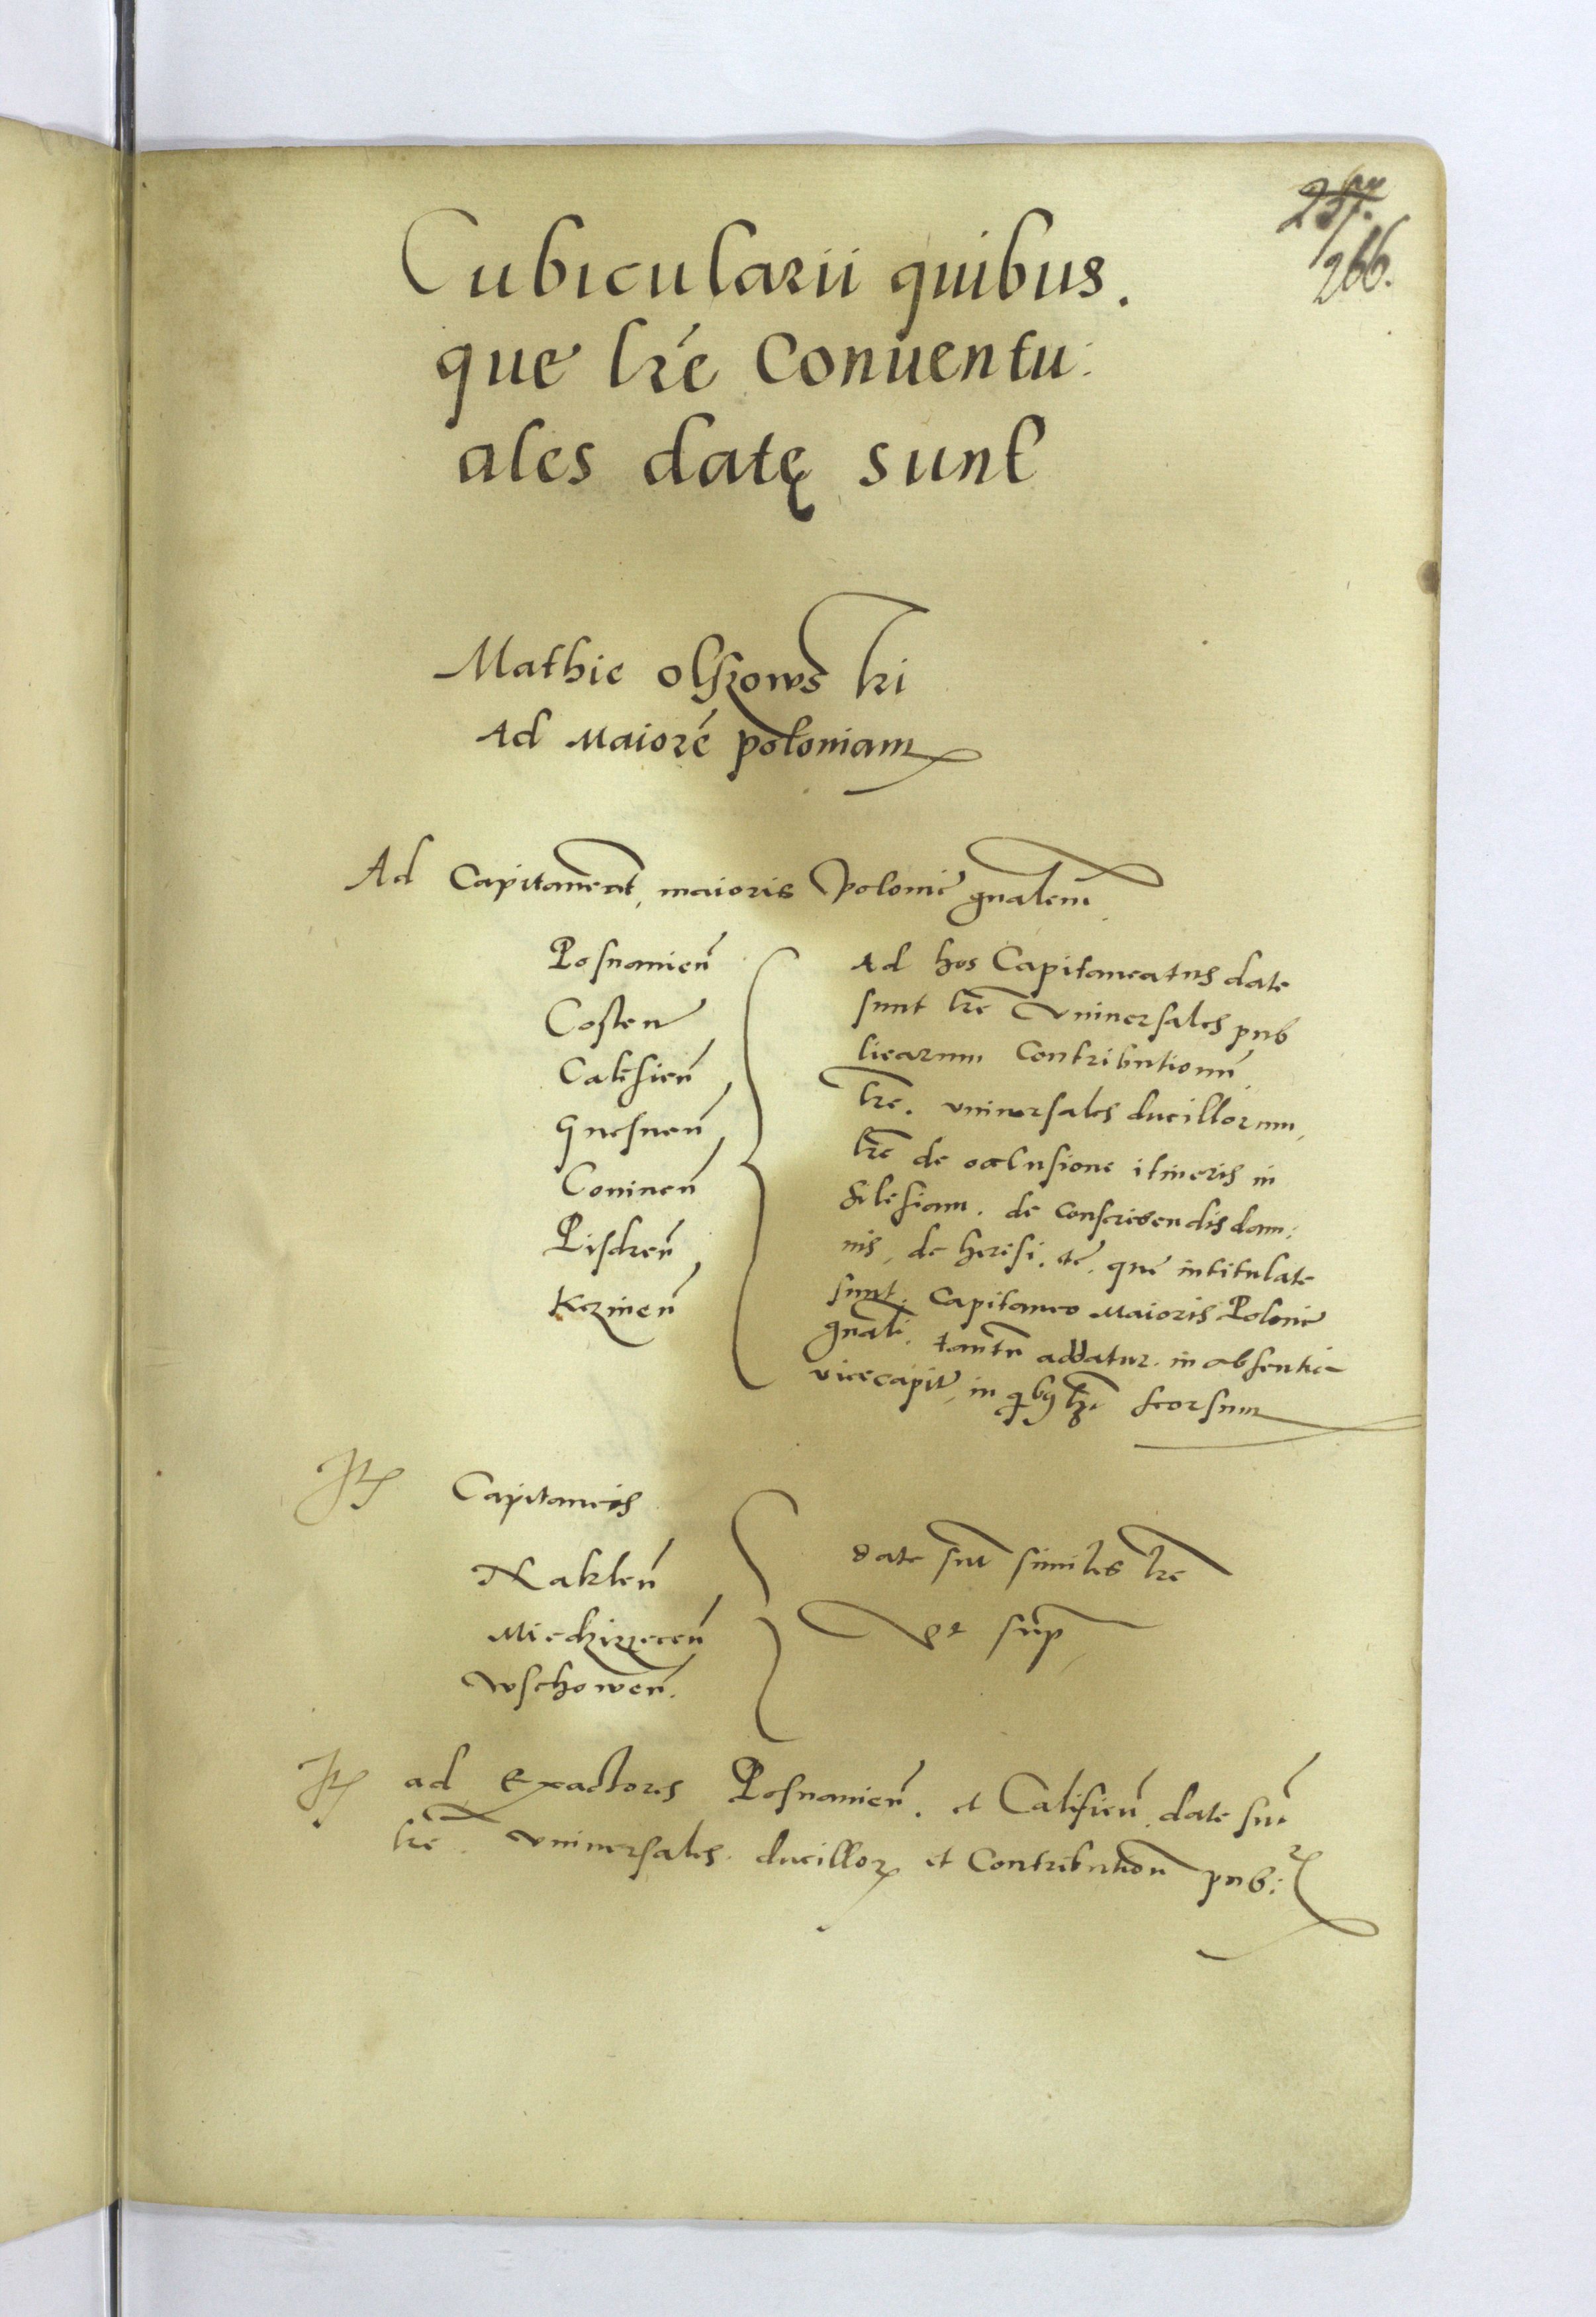 266.
Cubicularii quibus.
que lrē Conuentu:
ales datę sunt
Mathie olszowski
Ad Maiorē poloniam
Ad Capitaneat, maioris Polonie gnalem
Posnanien̄
Costen
Calisien̄
Gnesnen̄
Coninen̄
Pisdren̄
Kczinen̄
Ad hos Capitaneatus date
sunt lrē Vniuersales pub
licarum Contributionū
lrē. vniuersales ducillorum,
lrē de occlusione itineris in
Silesiam. de conscribendis dam:
nis, de heresi. etc. que intitulate
sunt. Capitaneo Maioris Polonie
gnali. tantū addatur. in absentia
vicecapit, in seorsum
Itē Capitaneis
Naklen̄
Miedzirzecen̄
Wschowen̄.
date sūt similes lrē
vt sup
Itē ad Exactores Posnanien̄. et Calisien̄. date sūt
lrē. vniuersales. ducillorꝝ et Contribution̄ pub: